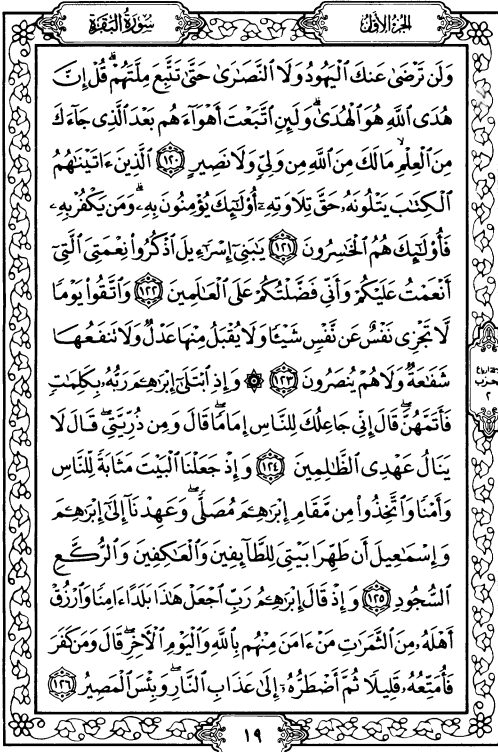 الجزء الأول
سورة البقرة
وَلَن تَرْضَىٰ عَنكَ ٱلْيَهُودُ وَلَا ٱلنَّصَـٰرَىٰ حَتَّىٰ تَتَّبِعَ مِلَّتَهُمْ ۗ قُلْ إِنَّ
هُدَى ٱللَّهِ هُوَ ٱلْهُدَىٰ ۗ وَلَئِنِ ٱتَّبَعْتَ أَهْوَآءَهُم بَعْدَ ٱلَّذِى جَآءَكَ
مِنَ ٱلْعِلْمِ ۙ مَا لَكَ مِنَ ٱللَّهِ مِن وَلِىٍّ وَلَا نَصِيرٍ ١٢٠ ٱلَّذِينَ ءَاتَيْنَـٰهُمُ
ٱلْكِتَـٰبَ يَتْلُونَهُۥ حَقَّ تِلَاوَتِهِۦٓ أُو۟لَـٰٓئِكَ يُؤْمِنُونَ بِهِۦ ۗ وَمَن يَكْفُرْ بِهِۦ
فَأُو۟لَـٰٓئِكَ هُمُ ٱلْخَـٰسِرُونَ ١٢١ يَـٰبَنِىٓ إِسْرَٰٓءِيلَ ٱذْكُرُوا۟ نِعْمَتِىَ ٱلَّتِىٓ
أَنْعَمْتُ عَلَيْكُمْ وَأَنِّى فَضَّلْتُكُمْ عَلَى ٱلْعَـٰلَمِينَ ١٢٢ وَٱتَّقُوا۟ يَوْمًا
لَّا تَجْزِى نَفْسٌ عَن نَّفْسٍ شَيْـًٔا وَلَا يُقْبَلُ مِنْهَا عَدْلٌ وَلَا تَنفَعُهَا
شَفَـٰعَةٌ وَلَا هُمْ يُنصَرُونَ ١٢٣ ۞ وَإِذِ ٱبْتَلَىٰٓ إِبْرَٰهِـۧمَ رَبُّهُۥ بِكَلِمَـٰتٍ
فَأَتَمَّهُنَّ ۖ قَالَ إِنِّى جَاعِلُكَ لِلنَّاسِ إِمَامًا ۖ قَالَ وَمِن ذُرِّيَّتِى ۖ قَالَ لَا
يَنَالُ عَهْدِى ٱلظَّـٰلِمِينَ ١٢٤ وَإِذْ جَعَلْنَا ٱلْبَيْتَ مَثَابَةً لِّلنَّاسِ
وَأَمْنًا وَٱتَّخِذُوا۟ مِن مَّقَامِ إِبْرَٰهِـۧمَ مُصَلًّى ۖ وَعَهِدْنَآ إِلَىٰٓ إِبْرَٰهِـۧمَ
وَإِسْمَـٰعِيلَ أَن طَهِّرَا بَيْتِىَ لِلطَّآئِفِينَ وَٱلْعَـٰكِفِينَ وَٱلرُّكَّعِ
ٱلسُّجُودِ ١٢٥ وَإِذْ قَالَ إِبْرَٰهِـۧمُ رَبِّ ٱجْعَلْ هَـٰذَا بَلَدًا ءَامِنًا وَٱرْزُقْ
أَهْلَهُۥ مِنَ ٱلثَّمَرَٰتِ مَنْ ءَامَنَ مِنْهُم بِٱللَّهِ وَٱلْيَوْمِ ٱلْـَٔاخِرِ ۖ قَالَ وَمَن كَفَرَ
فَأُمَتِّعُهُۥ قَلِيلًا ثُمَّ أَضْطَرُّهُۥٓ إِلَىٰ عَذَابِ ٱلنَّارِ ۖ وَبِئْسَ ٱلْمَصِيرُ ١٢٦
حزب
٢
١٩